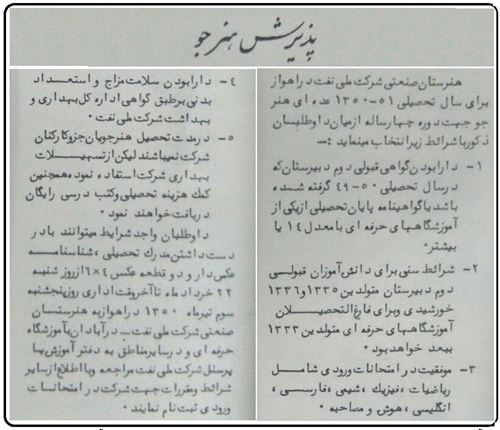 پذیرش هنرجو
هنرستان صنعتی شرکت ملی نفت در اهواز
برای سال تحصیلی ۵۱-۱۳۵۰ عده ای هنر
جو جهت دوره چهارساله ازمیان داوطلبان
ذکور با شرائط زیر انتخاب مینماید :-
۱- دارابودن گواهی قبولی دوم دبیرستان که
در سال تحصیلی ۵۰-۴۹ گرفته شده
باشد یا گواهینامه پایان تحصیلی ازیکی از
آموزشگاههای حرفه ای با معدل ۱۴ یا
بیشتر.
۲- شرائط سنی برای دانش آموزان قبولی
دوم دبیرستان متولدین ۱۳۳۵ و ۱۳۳۶
خورشیدی و برای فارغ التحصیلان
آموزشگاههای حرفه ای متولدین ۱۳۳۳
ببعد خواهد بود.
۳- موفقیت در امتحانات ورودی شامل
ریاضیات ، فیزیک ، شیمی ، فارسی ،
انگلیسی ، هوش و مصاحبه .
۴- دارابودن سلامت مزاج و استعداد
بدنی برطبق گواهی اداره کل بهداری و
بهداشت شرکت ملی نفت .
۵- در مدت تحصیل هنرجویان جزو کارکنان
شرکت نمیباشند لیکن از تسهیلات
بهداری شرکت استفاده نموده همچنین
کمک هزینه تحصیلی وکتب درسی رایگان
دریافت خواهند نمود .
داوطلبان واجد شرایط میتوانند با در
دست داشتن مدرک تحصیلی ، شناسنامه
عکس دار و دو قطعه عکس ۴×۶ از روز شنبه
۲۲ خرداد ماه تا آخروقت اداری روز پنجشنبه
سوم تیرماه ۱۳۵۰ در اهواز به هنرستان
صنعتی شرکت ملی نفت ـ در آبادان بآموزشگاه
حرفه ای و در سایر مناطق به دفتر آموزش یا
پرسنل شرکت ملی نفت مراجعه و با اطلاع از سایر
شرائط و مقررات جهت شرکت در امتحانات
ورودی ثبت نام نمایند .